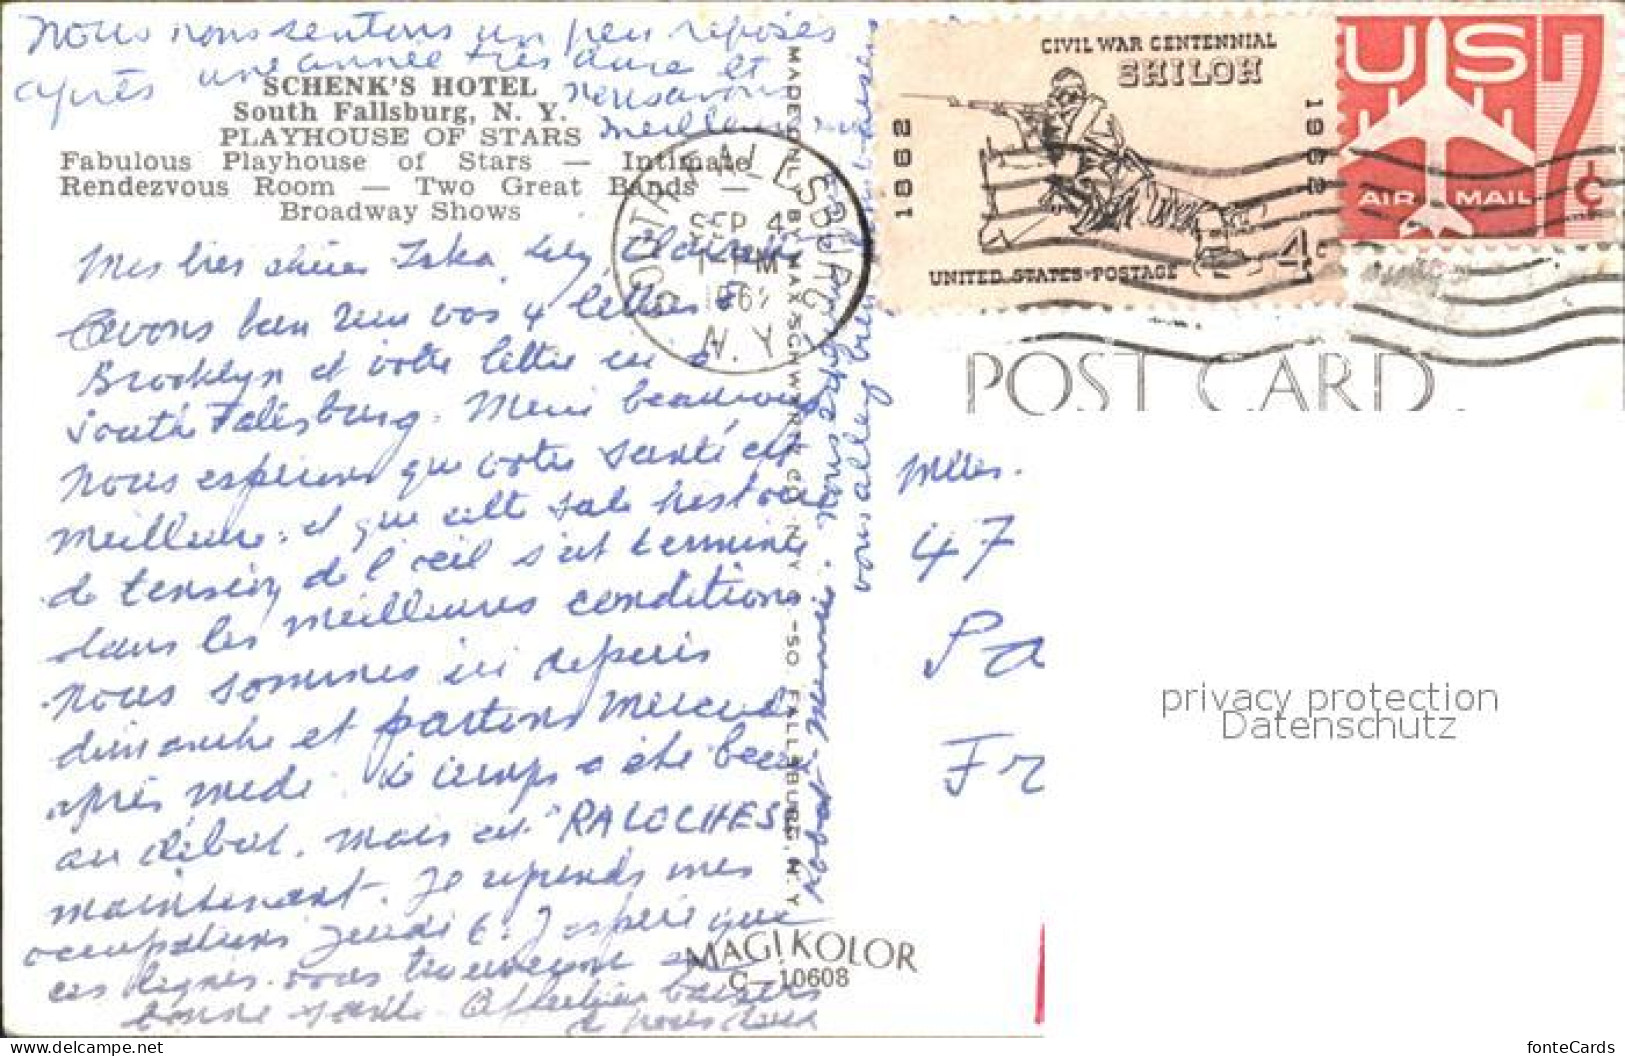 Nous nous sentons un peu reposés
après une année très dure et
nous avons
meilleure
SCHENK'S HOTEL
South Fallsburg, N. Y.
PLAYHOUSE OF STARS
Fabulous Playhouse of Stars — Intimate
Rendezvous Room — Two Great Bands —
Broadway Shows
Mes très chères Lily,
Avons bien reçu vos 4 lettres à
Brooklyn et votre lettre ici à
South Fallsburg. Merci beaucoup
nous espérons que votre santé est
meilleure, et que cette sale histoire
de tension de l'œil s'est terminée
dans les meilleures conditions
nous sommes ici depuis
dimanche et partons Mercredi
après midi. Le temps a été beau
au début. Mais est "RALOCHES"
maintenant. Je reprends mes
occupations jeudi 6. J'espère que
ces lignes vous trouveront en
bonne santé. baisers
à vous deux
MADE ONLY BY MAX SCHWARTZ CO. N.Y. & SO. FALLSBURG, N.Y.
vous allez bien
SOUTH FALLSBURG
SEP 4
1 PM
1962
N.Y.
CIVIL WAR CENTENNIAL
SHILOH
1862
1962
4c
UNITED STATES POSTAGE
US
7c
AIR MAIL
POST CARD
Mlles.
47
Pa
Fr
MAGIKOLOR
C—10608
privacy protection
Datenschutz
Your Ak-ansichtskarten.de Team
fonteCards